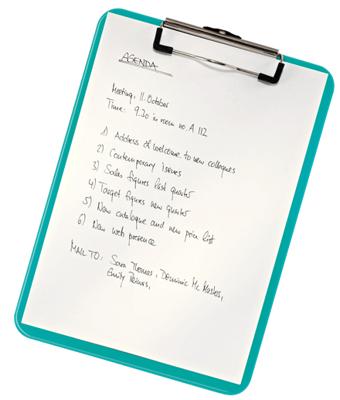 AGENDA
Meeting: 11. October
Time: 9.30 in room no. A 112
1) Address of welcome to new colleques
2) Contemporary Issues
3) Sales figures last quarter
4) Target figures new quarter
5) New catalogue and new price list
6) New web presence
MAIL TO: Sara Thomas, Dominic Mc Masters,
Emily